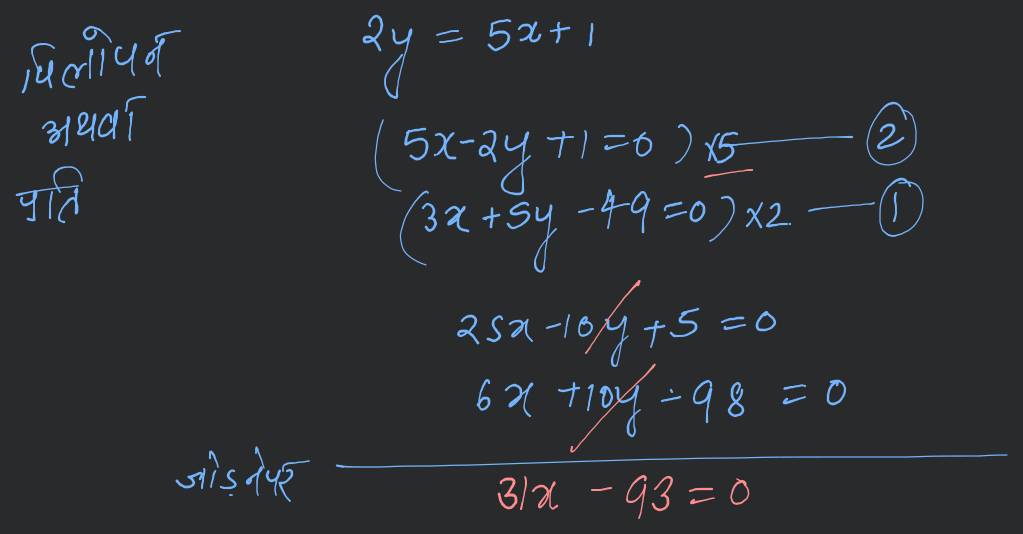 विलोपन
अथवा
प्रति
2y = 5x + 1
(5x - 2y + 1 = 0) x5 — ②
(3x + 5y - 49 = 0) x2 — ①
25x - 10y + 5 = 0
6x + 10y - 98 = 0
जोड़ने पर
31x - 93 = 0